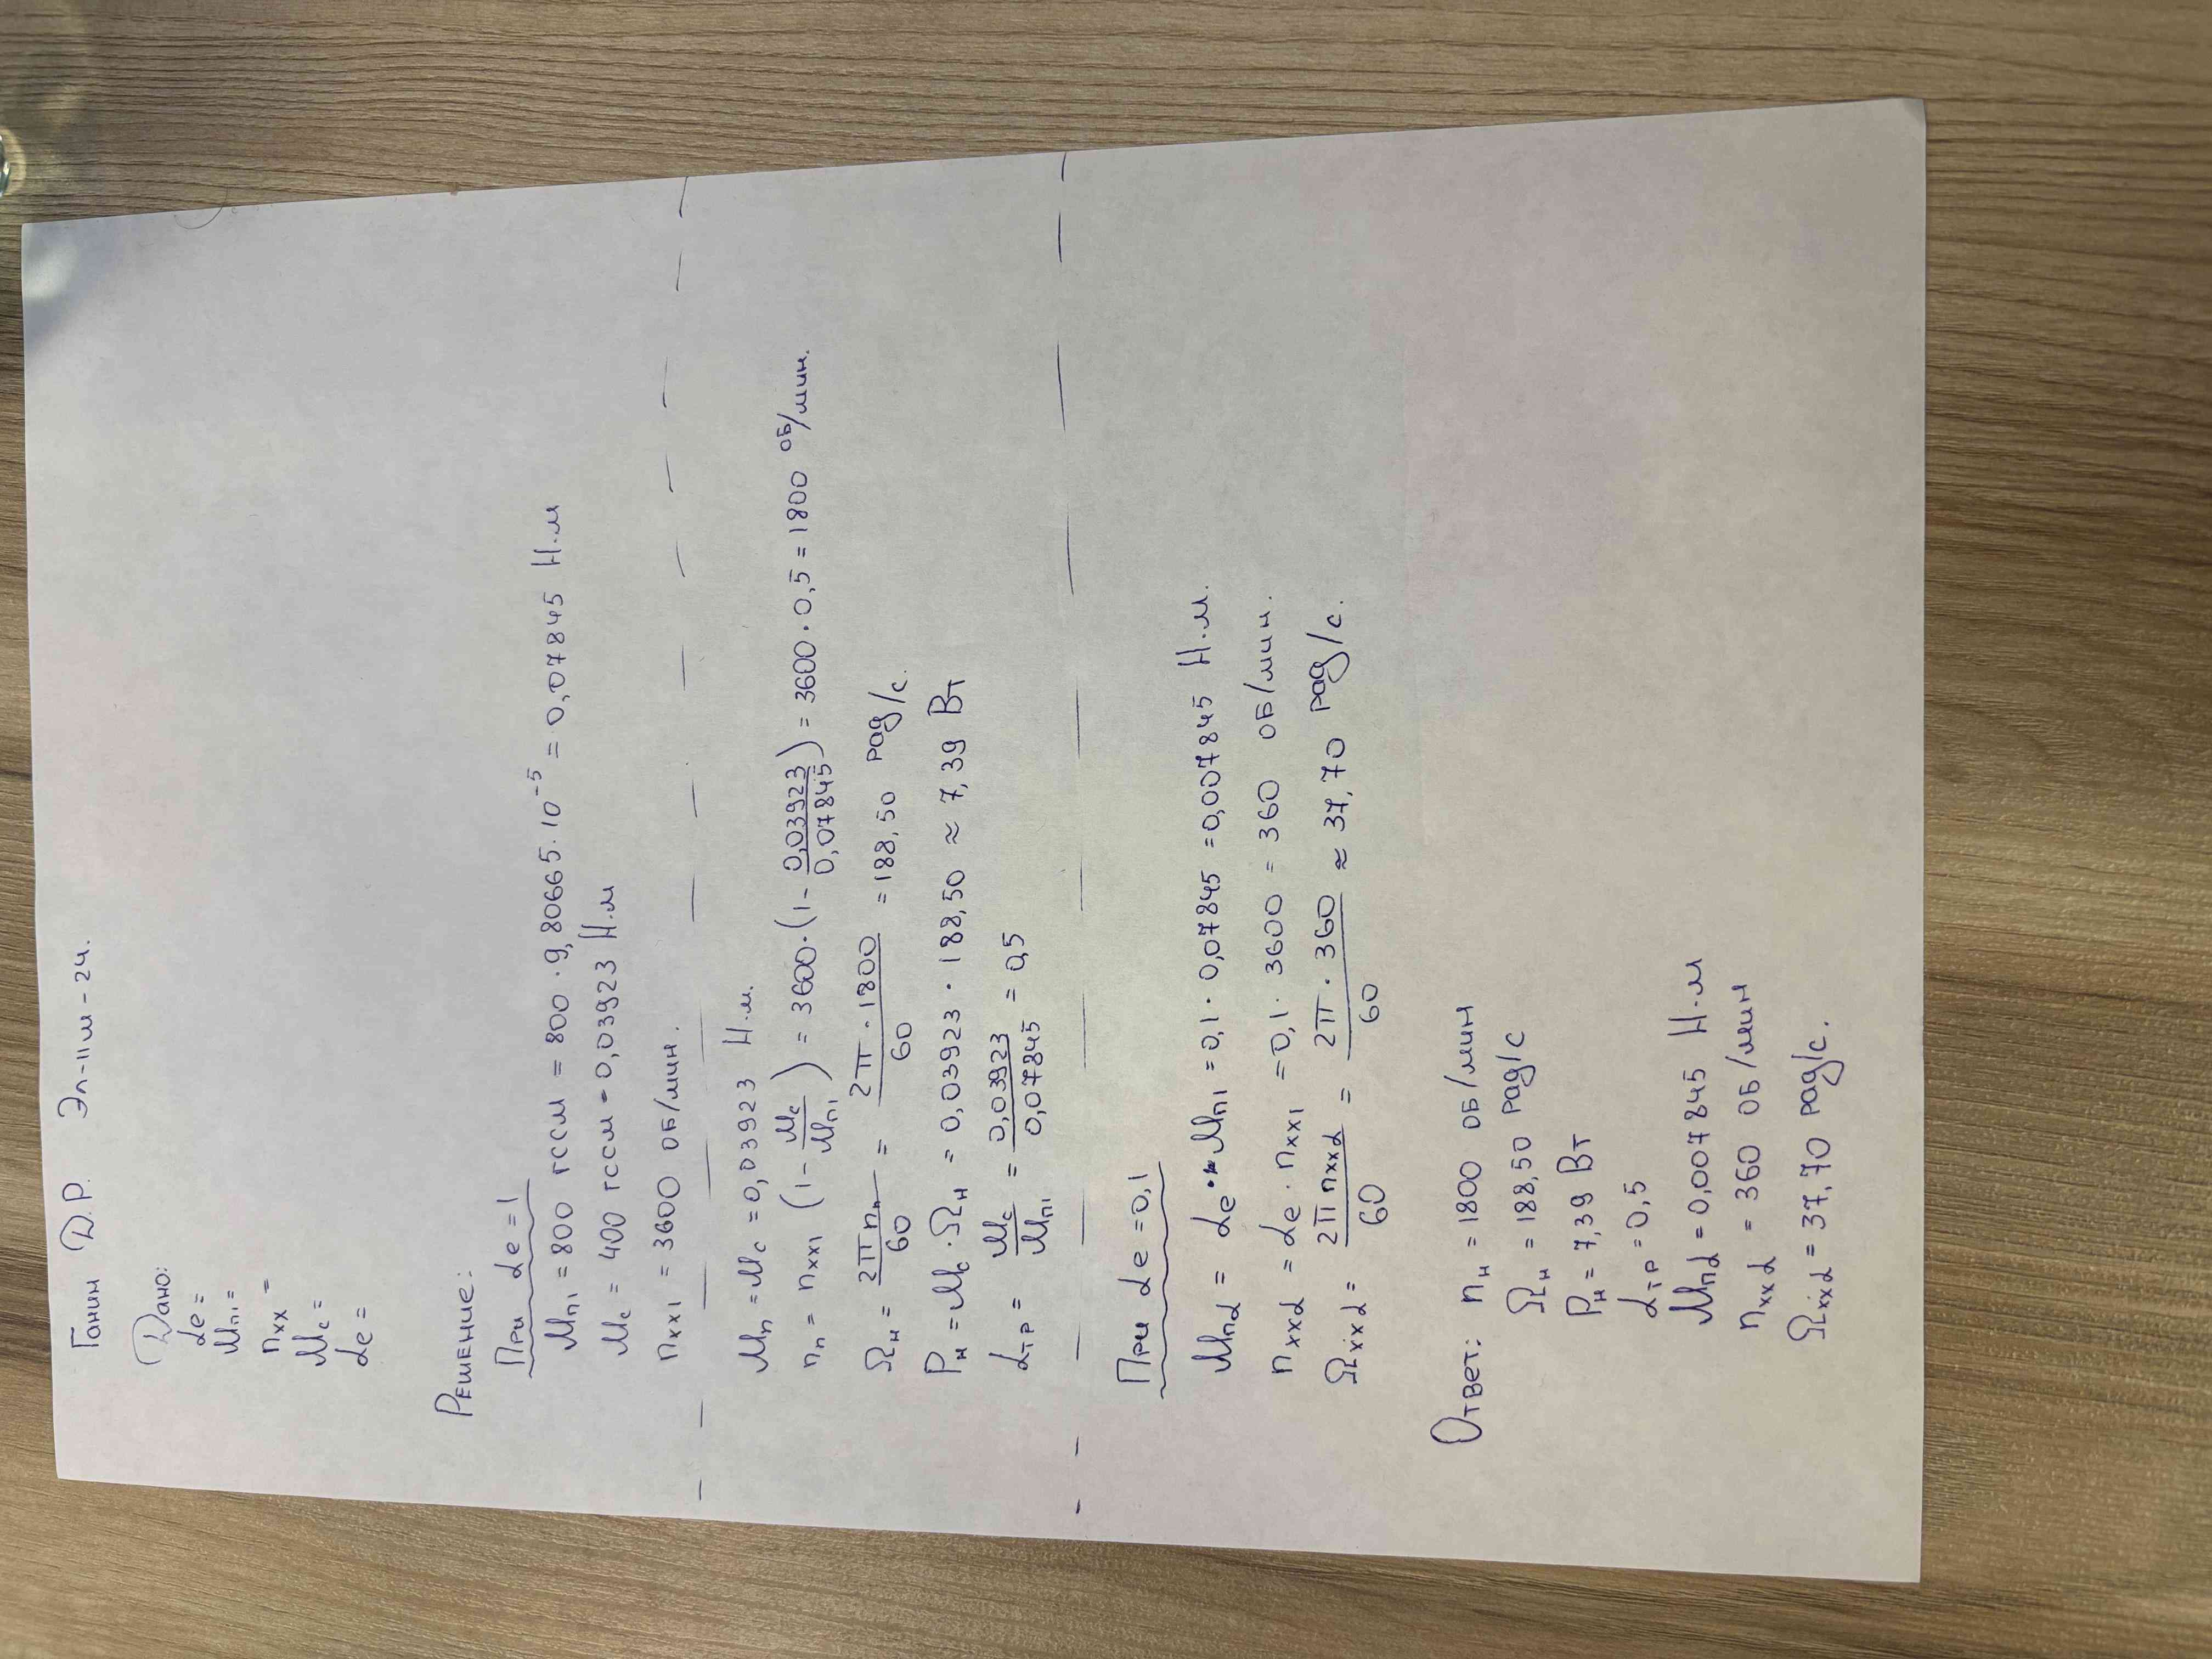 Ганин Д.Р. Эл-11ш-24.
Дано:
αe =
Mп1 =
nхх =
Mс =
αe =
Решение:
При αe = 1
Mп1 = 800 гссм = 800 · 9,80665 · 10⁻⁵ = 0,07845 Н·м
Mс = 400 гссм = 0,03923 Н·м
nхх1 = 3600 об/мин.
Mп = Mс = 0,03923 Н·м.
nп = nхх1 (1 - Mс/Mп1) = 3600·(1 - 0,03923/0,07845) = 3600·0,5 = 1800 об/мин.
Ωн = 2π nн/60 = 2π · 1800/60 = 188,50 рад/с.
Pн = Mс · Ωн = 0,03923 · 188,50 ≈ 7,39 Вт
αтр = Mс/Mп1 = 0,03923/0,07845 = 0,5
При αe = 0,1
Mпα = αe · Mп1 = 0,1 · 0,07845 = 0,007845 Н·м.
nххα = αe · nхх1 = 0,1 · 3600 = 360 об/мин.
Ωххα = 2π nххα/60 = 2π · 360/60 ≈ 37,70 рад/с.
Ответ: nн = 1800 об/мин
Ωн = 188,50 рад/с
Pн = 7,39 Вт
αтр = 0,5
Mпα = 0,007845 Н·м
nххα = 360 об/мин
Ωххα = 37,70 рад/с.